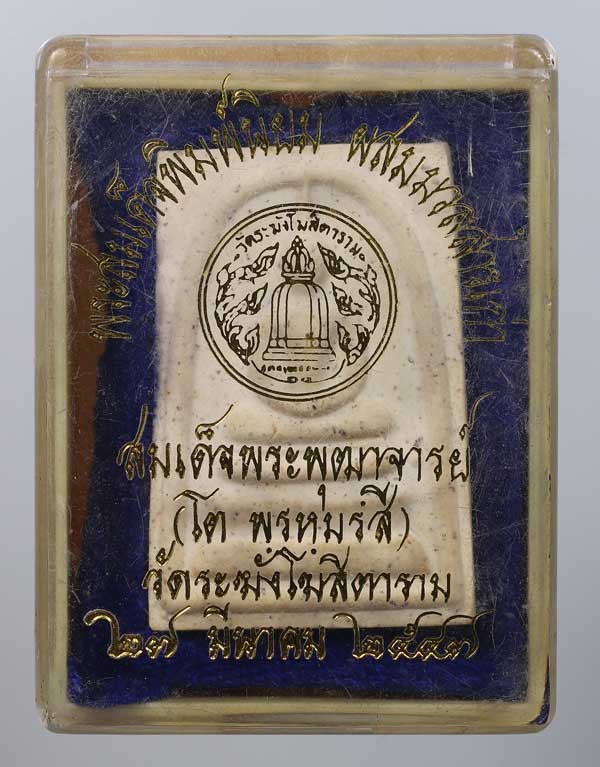 พระสมเด็จพิมพ์นิยม ผสมมวลสารเก่า
วัดระฆังโฆสิตาราม
สมเด็จพระพุฒาจารย์
(โต พฺรหฺมรํสี)
วัดระฆังโฆสิตาราม
๒๗ มีนาคม ๒๕๔๗